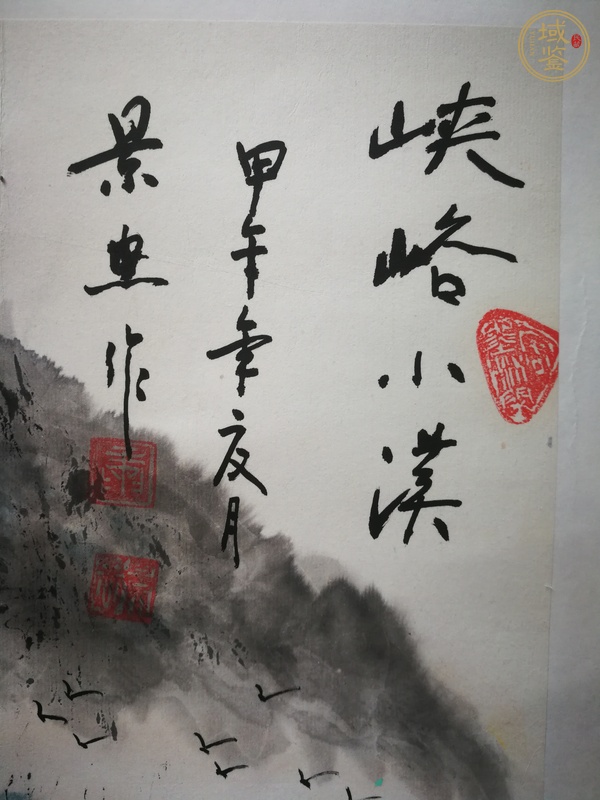 峡峪小溪
甲午年夏月
景忠作
域鉴